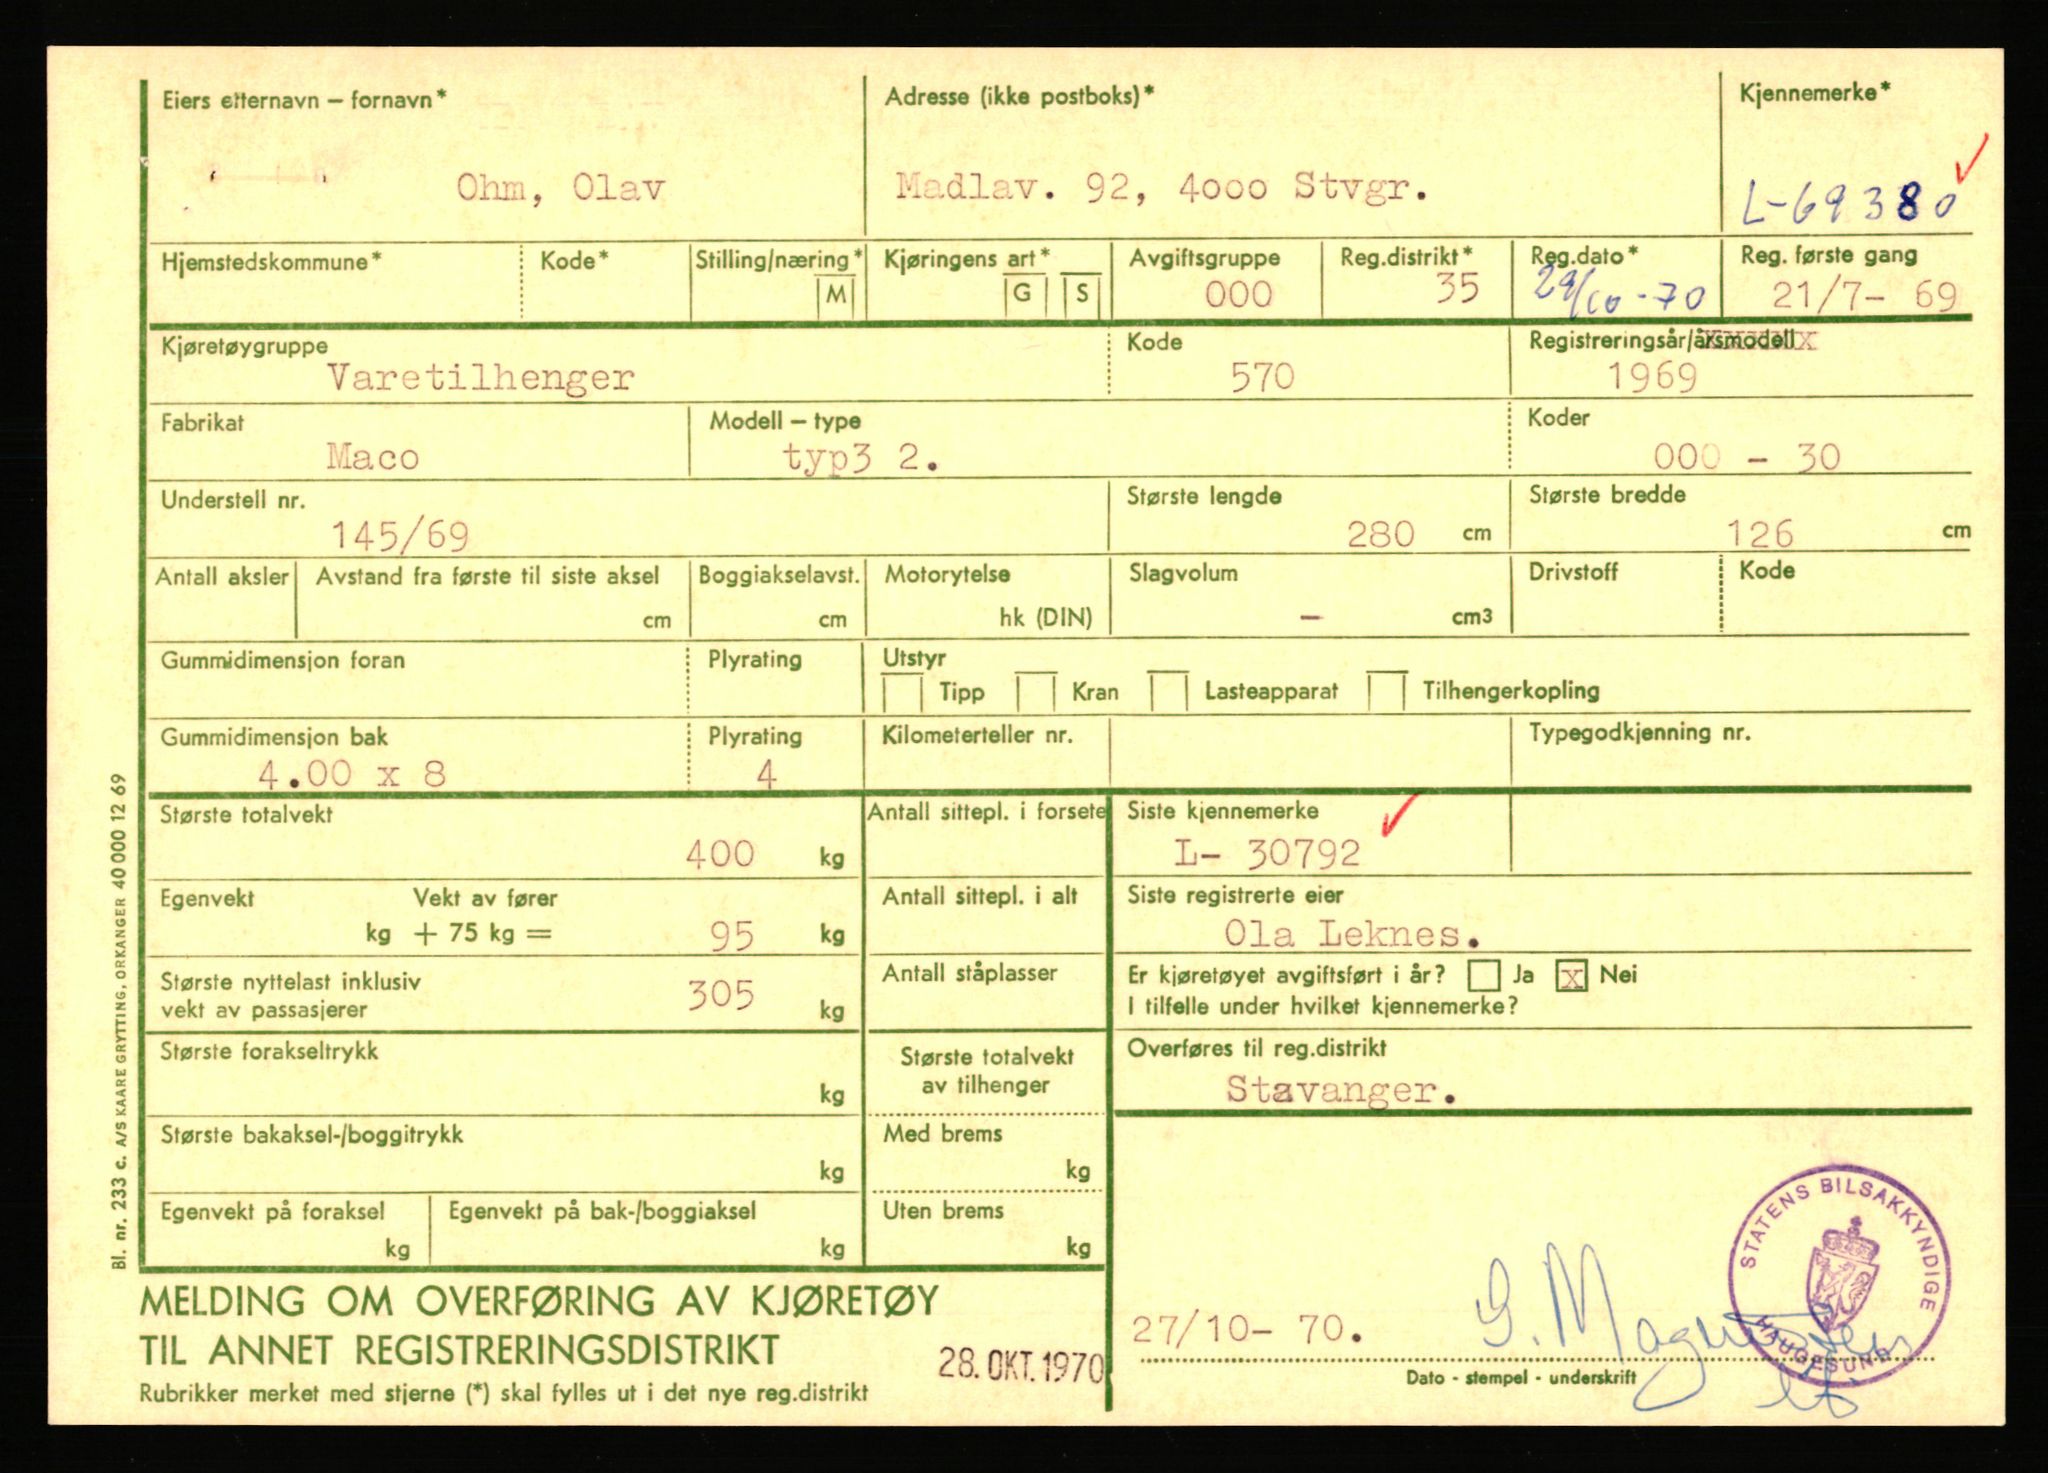 Eiers etternavn – fornavn*
Adresse (ikke postboks)*
Kjennemerke*
Ohm, Olav
Madlav. 92, 4000 Stvgr.
L-69380
Hjemstedskommune*
Kode*
Stilling/næring*
M
Kjøringens art*
G
S
Avgiftsgruppe
000
Reg.distrikt*
35
Reg.dato*
29/10-70
Reg. første gang
21/7- 69
Kjøretøygruppe
Varetilhenger
Kode
570
Registreringsår/årsmodell
1969
Fabrikat
Maco
Modell – type
typ3 2.
Koder
000 - 30
Understell nr.
145/69
Største lengde
280 cm
Største bredde
126 cm
Antall aksler
Avstand fra første til siste aksel
cm
Boggiakselavst.
cm
Motorytelse
hk (DIN)
Slagvolum
– cm3
Drivstoff
Kode
Gummidimensjon foran
Plyrating
Utstyr
Tipp
Kran
Lasteapparat
Tilhengerkopling
Gummidimensjon bak
4.00 x 8
Plyrating
4
Kilometerteller nr.
Typegodkjenning nr.
Største totalvekt
400 kg
Antall sittepl. i forsete
Siste kjennemerke
L- 30792
Egenvekt
Vekt av fører
kg + 75 kg = 95 kg
Antall sittepl. i alt
Siste registrerte eier
Ola Leknes.
Største nyttelast inklusiv
vekt av passasjerer
305 kg
Antall ståplasser
Er kjøretøyet avgiftsført i år? Ja x Nei
I tilfelle under hvilket kjennemerke?
Største forakseltrykk
kg
Største totalvekt
av tilhenger
Overføres til reg.distrikt
Stavanger.
Største bakaksel-/boggitrykk
kg
Med brems
kg
Egenvekt på foraksel
kg
Egenvekt på bak-/boggiaksel
kg
Uten brems
kg
STATENS BILSAKKYNDIGE
HAUGESUND
MELDING OM OVERFØRING AV KJØRETØY
TIL ANNET REGISTRERINGSDISTRIKT
Rubrikker merket med stjerne (*) skal fylles ut i det nye reg.distrikt
28. OKT. 1970
27/10- 70.
Dato - stempel - underskrift
Bl. nr. 233 c. A/S KAARE GRYTTING, ORKANGER 40000 12 69